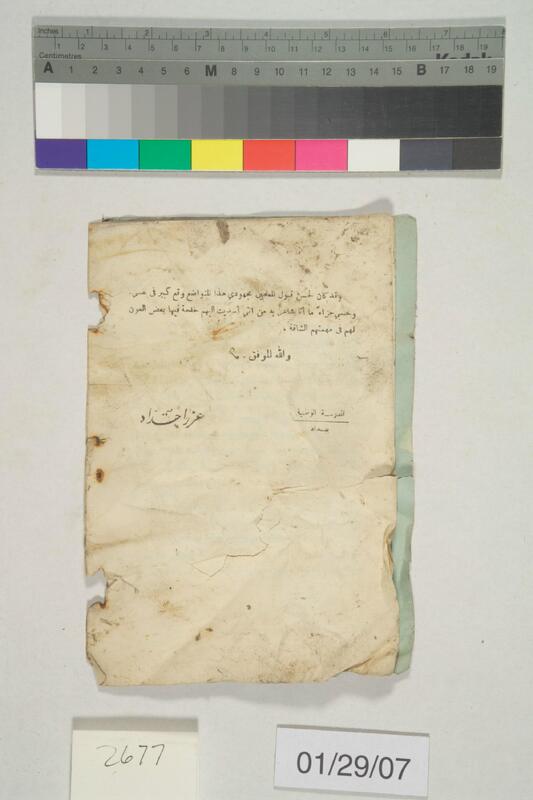 Inches 1 2 3 4 5 6 7 8
Centimetres 1 2 3 4 5 6 7 8 9 10 11 12 13 14 15 16 17 18 19
Kodak
A 1 2 3 4 5 6 M 8 9 10 11 12 13 14 15 B 17 18 19
وقد كان لحسن قبول المعلمين مجهودي هذا المتواضع وقع كبير في نفسي.
وحسبي جزاءً ما أنا شاعر به من أني أسديت اليهم خدمة فيها بعض العون
لهم في مهمتهم الشاقة.
والله الموفق.
المدرسة الوطنية
بغداد
عزرا حداد
2677
01/29/07